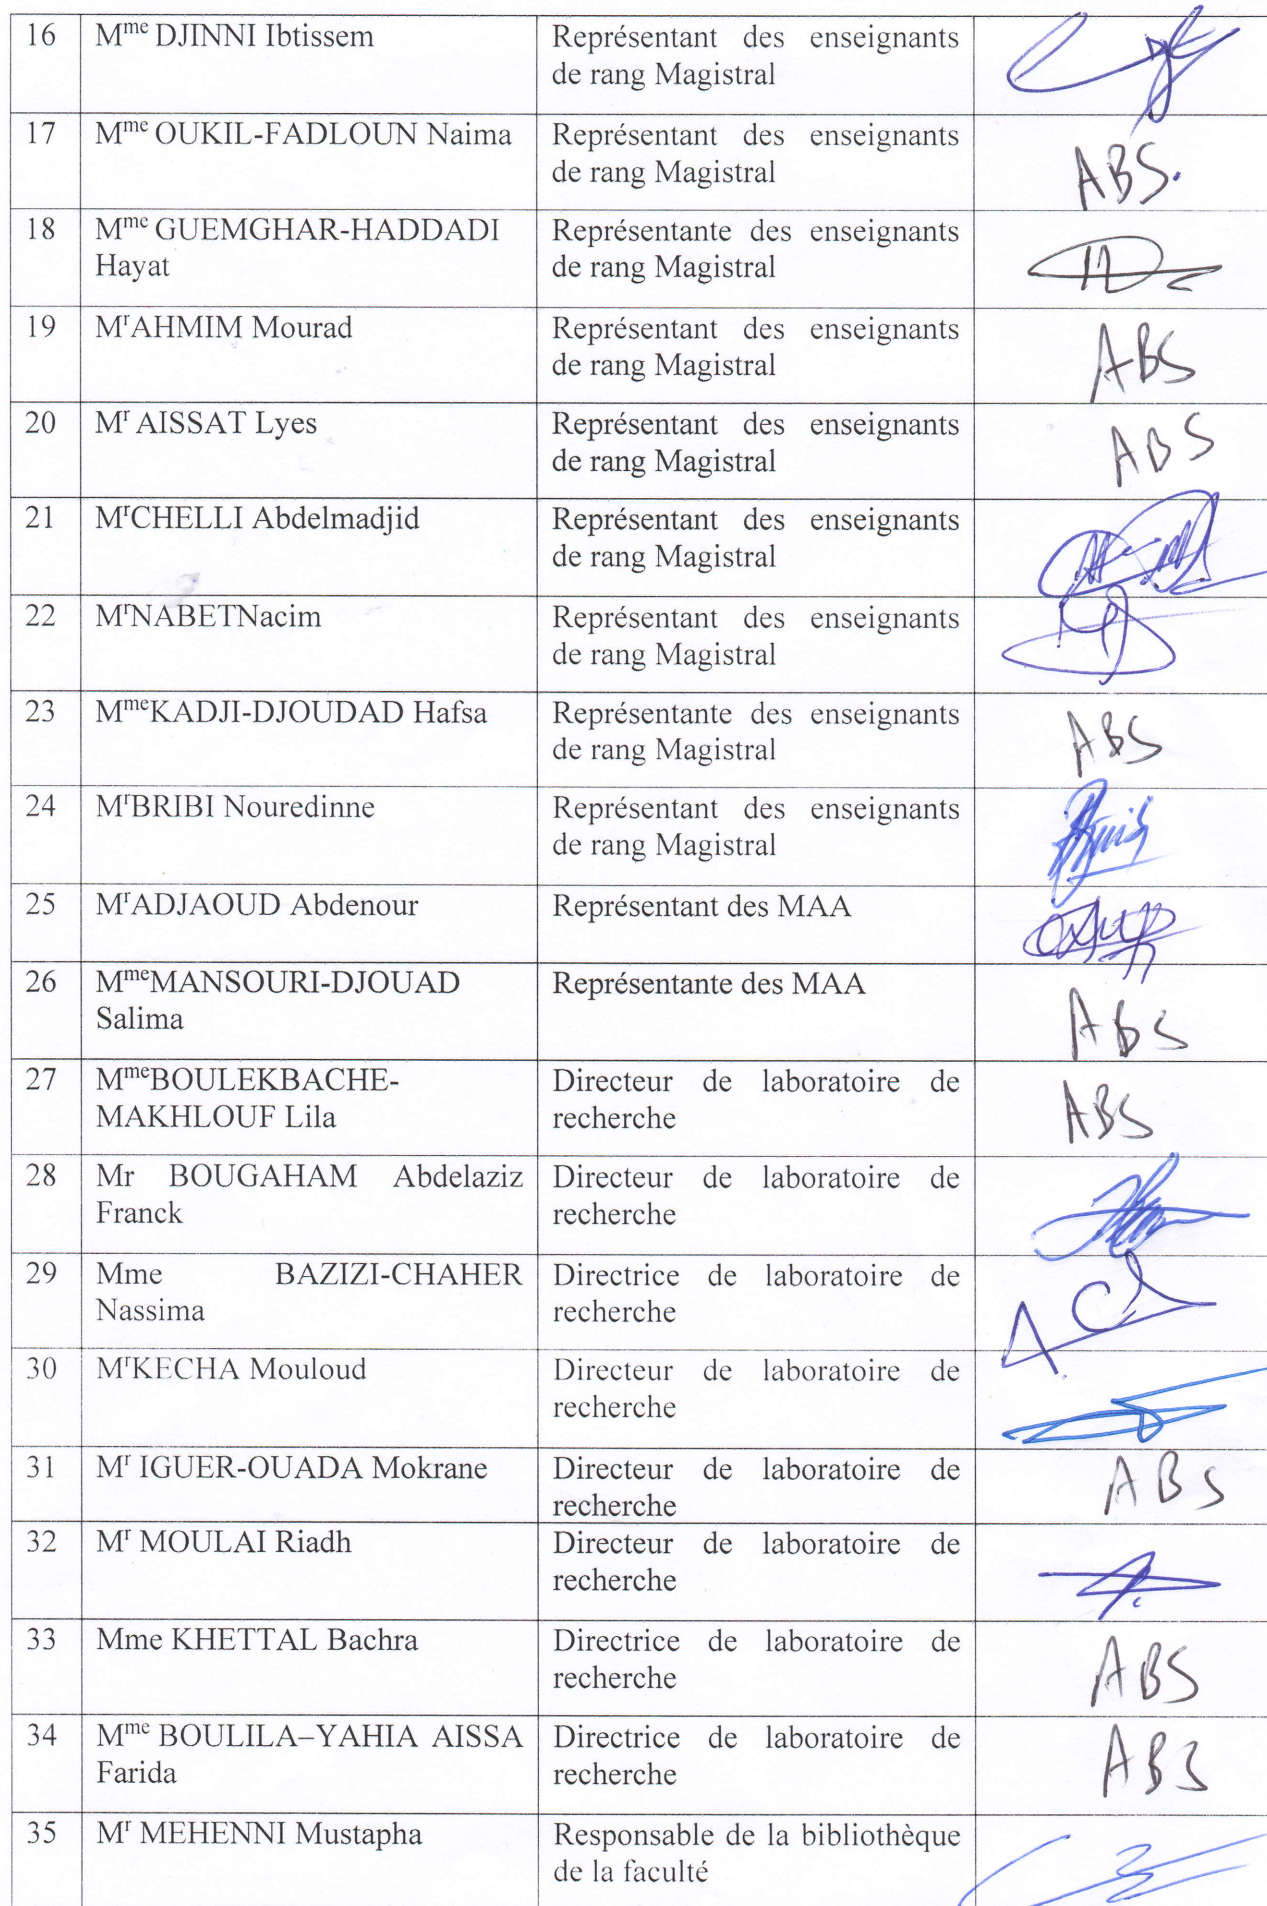 16 Mme DJINNI Ibtissem Représentant des enseignants
de rang Magistral
17 Mme OUKIL-FADLOUN Naima Représentant des enseignants ABS.
de rang Magistral
18 Mme GUEMGHAR-HADDADI Représentante des enseignants
Hayat de rang Magistral
19 MrAHMIM Mourad Représentant des enseignants ABS
de rang Magistral
20 Mr AISSAT Lyes Représentant des enseignants ABS
de rang Magistral
21 MrCHELLI Abdelmadjid Représentant des enseignants
de rang Magistral
22 MrNABETNacim Représentant des enseignants
de rang Magistral
23 MmeKADJI-DJOUDAD Hafsa Représentante des enseignants ABS
de rang Magistral
24 MrBRIBI Nouredinne Représentant des enseignants
de rang Magistral
25 MrADJAOUD Abdenour Représentant des MAA
26 MmeMANSOURI-DJOUAD Représentante des MAA ABS
Salima
27 MmeBOULEKBACHE- Directeur de laboratoire de ABS
MAKHLOUF Lila recherche
28 Mr BOUGAHAM Abdelaziz Directeur de laboratoire de
Franck recherche
29 Mme BAZIZI-CHAHER Directrice de laboratoire de
Nassima recherche
30 MrKECHA Mouloud Directeur de laboratoire de
recherche
31 Mr IGUER-OUADA Mokrane Directeur de laboratoire de ABS
recherche
32 Mr MOULAI Riadh Directeur de laboratoire de
recherche
33 Mme KHETTAL Bachra Directrice de laboratoire de ABS
recherche
34 Mme BOULILA–YAHIA AISSA Directrice de laboratoire de ABS
Farida recherche
35 Mr MEHENNI Mustapha Responsable de la bibliothèque
de la faculté